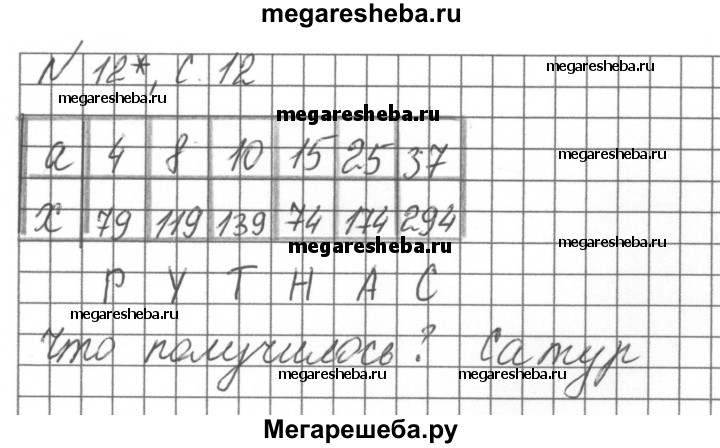 megaresheba.ru
N 12*, с. 12
megaresheba.ru
megaresheba.ru
megaresheba.ru
а 4 8 10 15 25 37
megaresheba.ru
х 79 119 139 74 174 294
megaresheba.ru
megaresheba.ru
Р У Т Н А С
megaresheba.ru
Что получилось? Сатур
megaresheba.ru megaresheba.ru
Мегарешеба.ру